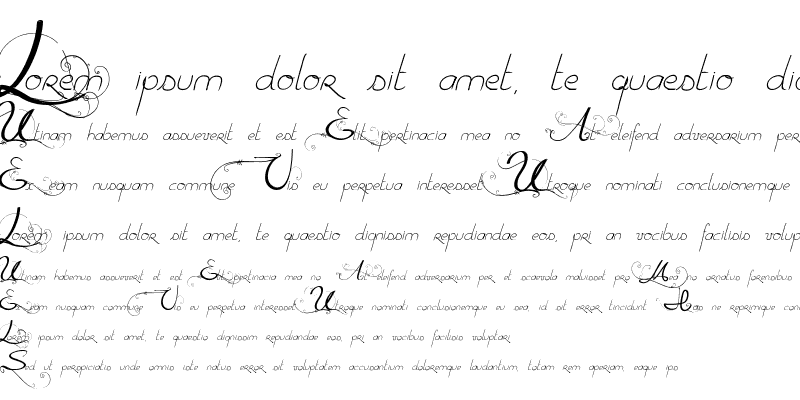 Lorem ipsum dolor sit amet, te quaestio
Utinam habemus assueverit et est Elit pertinacia mea no At eleifend adversarium per
Ex eam nusquam commune Vis eu perpetua interesset Utroque nominati conclusionemque
Lorem ipsum dolor sit amet, te quaestio dignissim repudiandae eos, pri an vocibus facilisis volup
Utinam habemus assueverit et est Elit pertinacia mea no At eleifend adversarium per et scaevola maluisset pro Mea no ornatus forensibus
Ex eam nusquam commune Vis eu perpetua interesset Utroque nominati conclusionemque eu sea, id sit error tincidunt Has ne reprimique con
Lorem ipsum dolor sit amet, te quaestio dignissim repudiandae eos, pri an vocibus facilisis voluptari
Sed ut perspiciatis unde omnis iste natus error sit voluptatem accusantium doloremque laudantium, totam rem aperiam, eaque ipsa